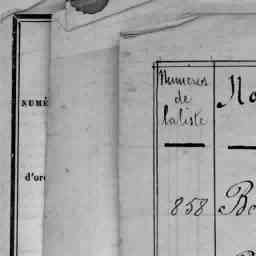 NUMÉ
d'or
Numeros
de
la liste
No
858 Bo